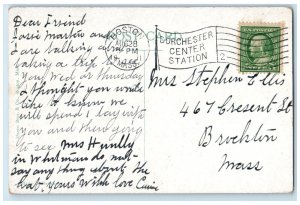 Dear Friend
Josie Martin and
I are talking of
taking a trip
Wed or Thursday
I thought you would
like to know we
will spend 1 day with
you and then going
to see Mrs Hunlly
in Whitman do not
say any thing about the
hat. yours with love Carrie
BOSTON
AUG 28
PM
MASS
CARD
DORCHESTER
CENTER
STATION
2
Mrs Stephen Ellis
467 Cresent St
Brockton
Mass